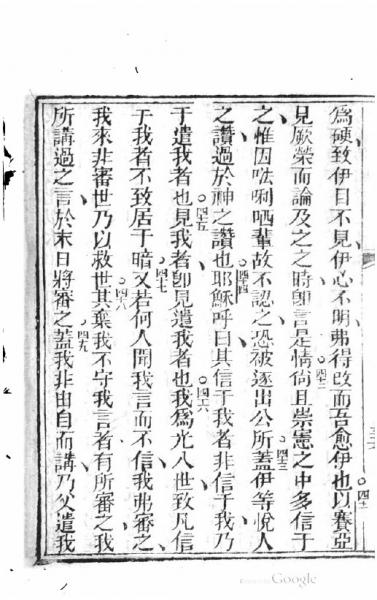 為硬致伊目不見伊心不明弗得改而吾愈伊也以賽亞
見厥榮而論及之之時即言是情尚且崇憲之中多信于
之惟因𠵽唎哂輩故不認之恐被逐出公所蓋伊等悅人
之讚過於神之讚也耶穌呼曰其信于我者非信于我乃
于遣我者也見我者即見遣我者也我為光入世致凡信
于我者不致居于暗又若何人聞我言而不信我弗審之
我來非審世乃以救世其棄我不守我言者有所審之我
所講過之言於末日將審之蓋我非由自而講乃父遣我
四十
四二
四三
四四
四五
四六
四七
四八
四九
Google